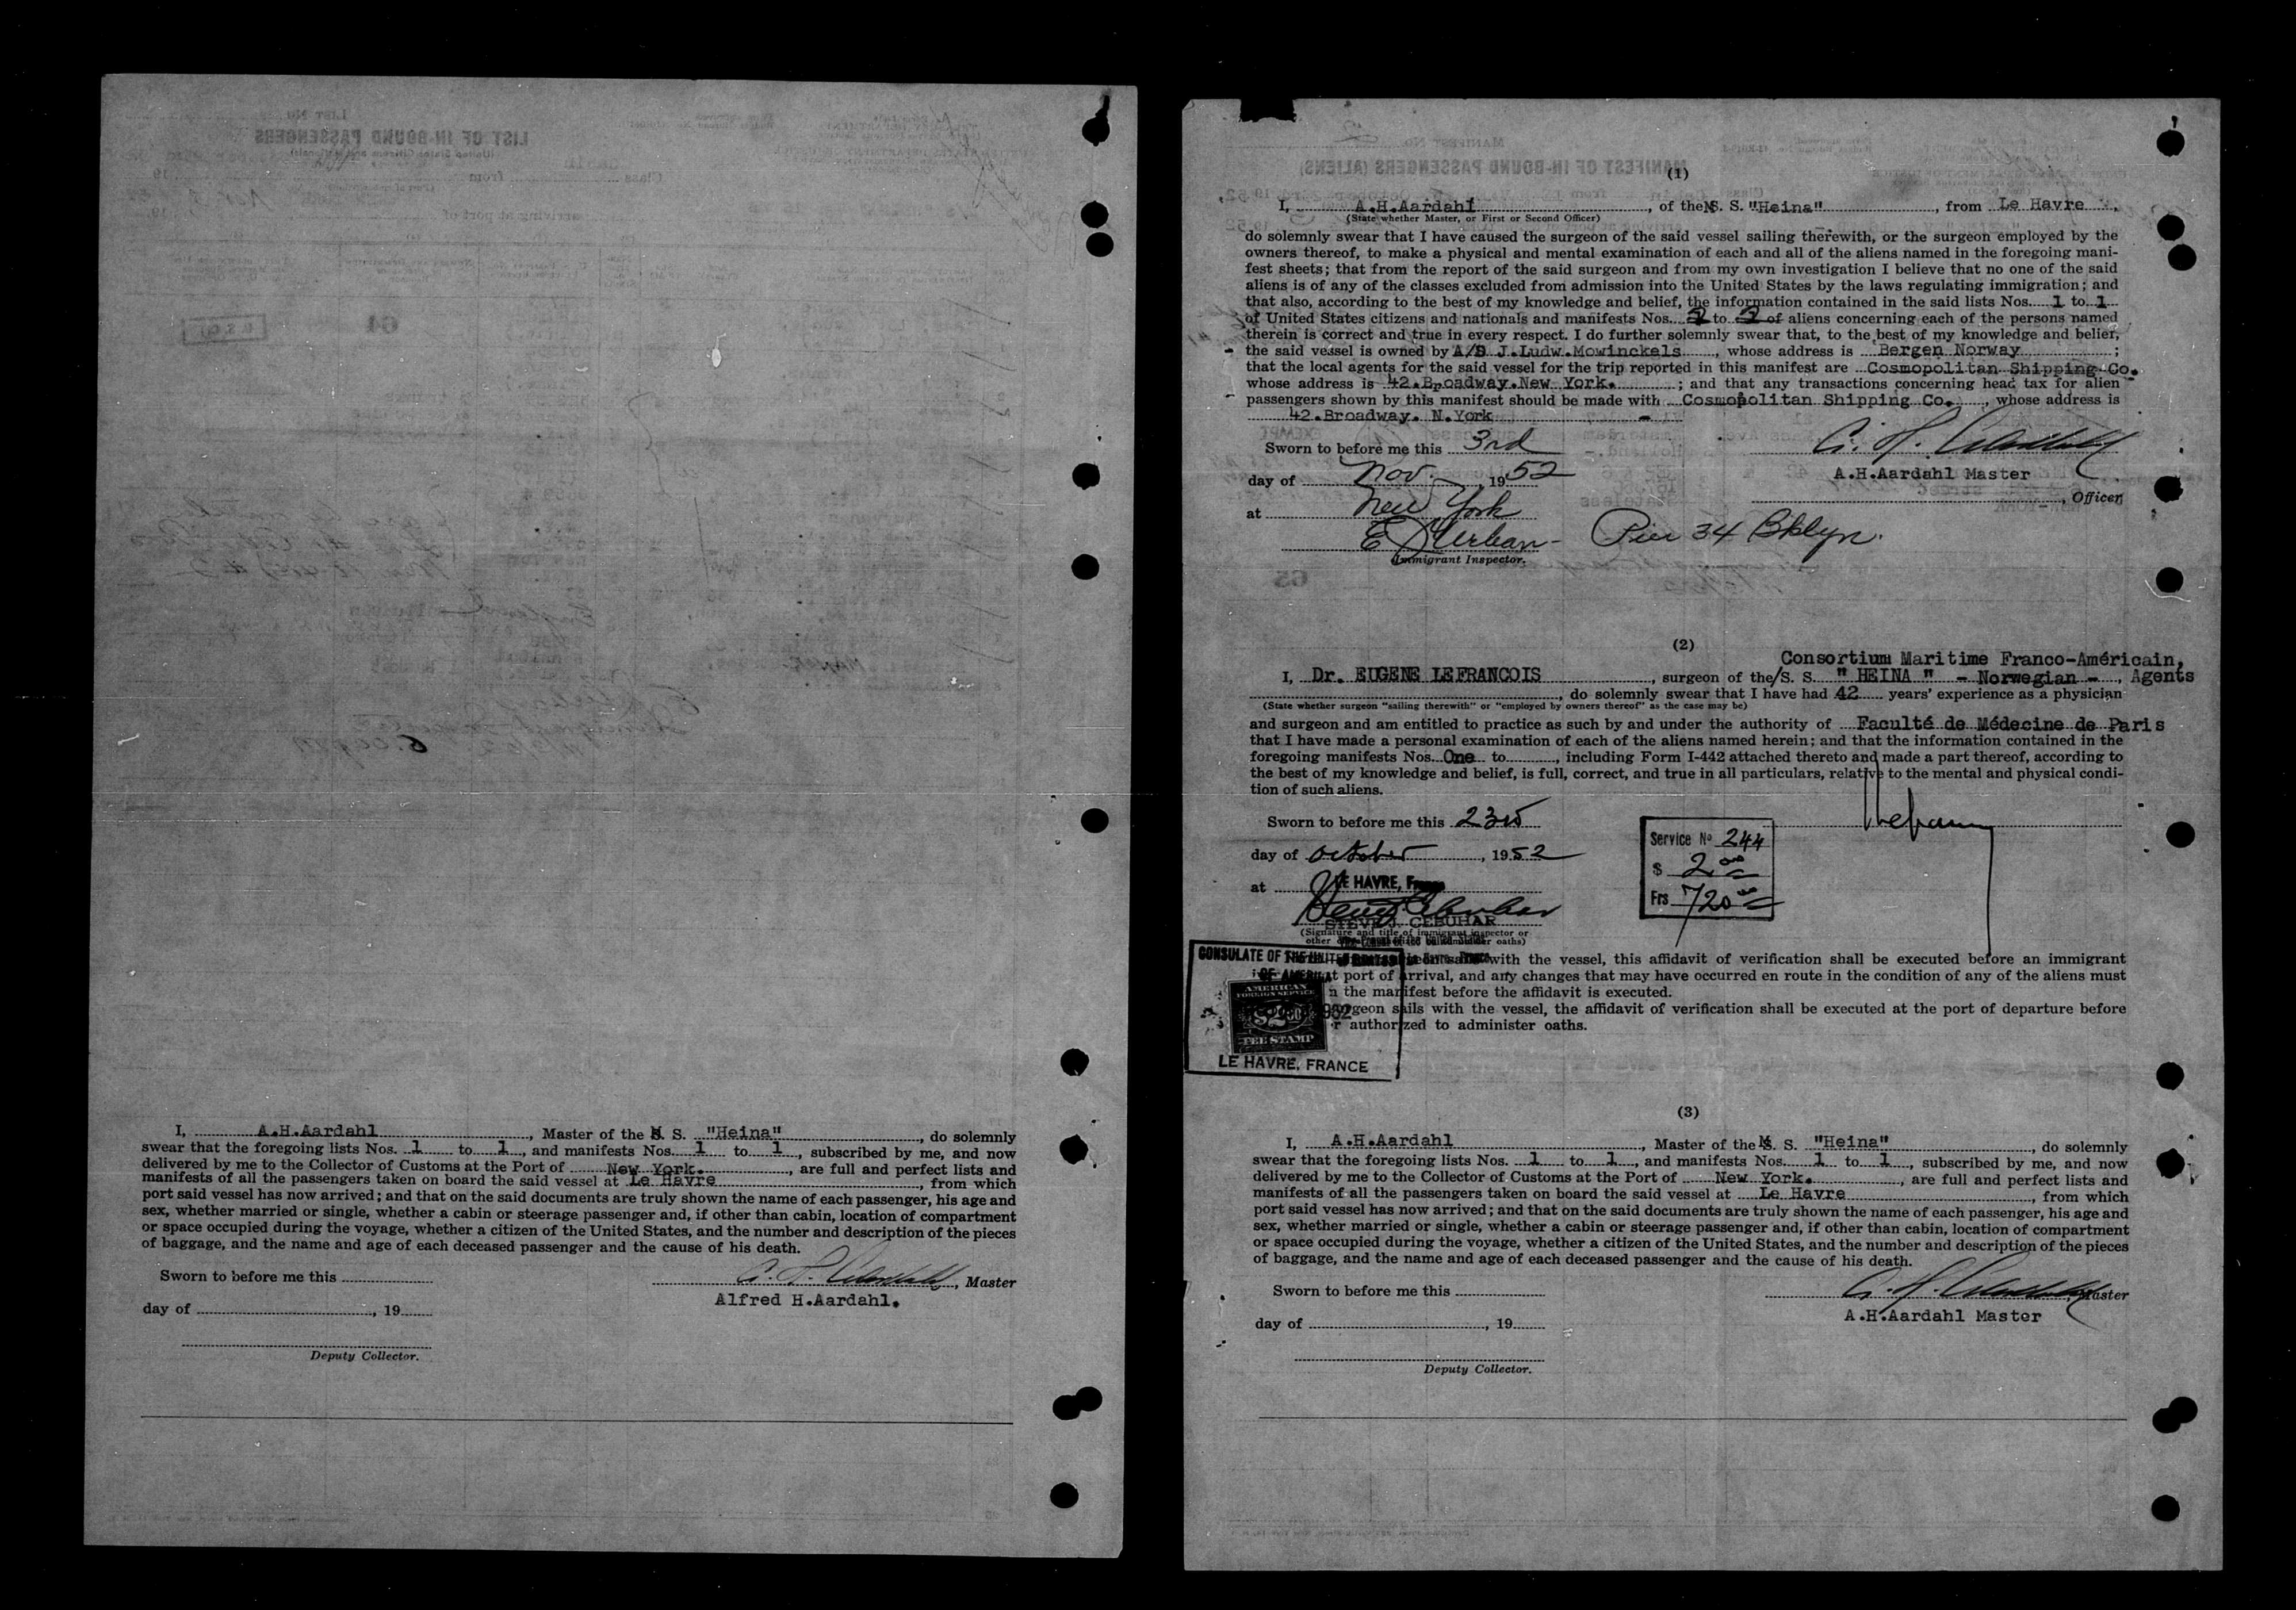 I, A.H.Aardahl, Master of the M. S. "Heina", do solemnly
swear that the foregoing lists Nos. 1 to 1, and manifests Nos. 1 to 1, subscribed by me, and now
delivered by me to the Collector of Customs at the Port of New York., are full and perfect lists and
manifests of all the passengers taken on board the said vessel at Le Havre, from which
port said vessel has now arrived; and that on the said documents are truly shown the name of each passenger, his age and
sex, whether married or single, whether a cabin or steerage passenger and, if other than cabin, location of compartment
or space occupied during the voyage, whether a citizen of the United States, and the number and description of the pieces
of baggage, and the name and age of each deceased passenger and the cause of his death.
Sworn to before me this
, Master
Alfred H.Aardahl.
day of , 19
Deputy Collector.
(1)
I, A.H.Aardahl, of the M. S. "Heina", from Le Havre,
(State whether Master, or First or Second Officer)
do solemnly swear that I have caused the surgeon of the said vessel sailing therewith, or the surgeon employed by the
owners thereof, to make a physical and mental examination of each and all of the aliens named in the foregoing mani-
fest sheets; that from the report of the said surgeon and from my own investigation I believe that no one of the said
aliens is of any of the classes excluded from admission into the United States by the laws regulating immigration; and
that also, according to the best of my knowledge and belief, the information contained in the said lists Nos. 1 to 1
of United States citizens and nationals and manifests Nos. to of aliens concerning each of the persons named
therein is correct and true in every respect. I do further solemnly swear that, to the best of my knowledge and belief,
the said vessel is owned by A/S J.Ludw.Mowinckels, whose address is Bergen Norway;
that the local agents for the said vessel for the trip reported in this manifest are Cosmopolitan Shipping Co.
whose address is 42.Broadway.New York.; and that any transactions concerning head tax for alien
passengers shown by this manifest should be made with Cosmopolitan Shipping Co., whose address is
42.Broadway. N.York -
Sworn to before me this 3rd
A.H.Aardahl Master
day of Nov., 1952
, Officer
at New York
E Urban - Pier 34 Bklyn.
Immigrant Inspector.
(2)
Consortium Maritime Franco-Américain,
I, Dr. EUGENE LEFRANCOIS, surgeon of the/S. S. " HEINA " - Norwegian -, Agents
, do solemnly swear that I have had 42 years' experience as a physician
(State whether surgeon "sailing therewith" or "employed by owners thereof" as the case may be)
and surgeon and am entitled to practice as such by and under the authority of Faculté de Médecine de Paris
that I have made a personal examination of each of the aliens named herein; and that the information contained in the
foregoing manifests Nos. One to , including Form I-442 attached thereto and made a part thereof, according to
the best of my knowledge and belief, is full, correct, and true in all particulars, relative to the mental and physical condi-
tion of such aliens.
Sworn to before me this 23rd
Service No 244
day of October, 1952
$ 2.00
at LE HAVRE, France
Frs 720.00
STEVE J. CEBUHAR
(Signature and title of immigrant inspector or
other to administer oaths)
CONSULATE OF THE UNITED with the vessel, this affidavit of verification shall be executed before an immigrant
OF AMERICA at port of arrival, and any changes that may have occurred en route in the condition of any of the aliens must
n the manifest before the affidavit is executed.
AMERICAN
FOREIGN SERVICE
geon sails with the vessel, the affidavit of verification shall be executed at the port of departure before
r authorized to administer oaths.
FEE STAMP
LE HAVRE, FRANCE
(3)
I, A.H.Aardahl, Master of the M. S. "Heina", do solemnly
swear that the foregoing lists Nos. 1 to 1, and manifests Nos. 1 to 1, subscribed by me, and now
delivered by me to the Collector of Customs at the Port of New York., are full and perfect lists and
manifests of all the passengers taken on board the said vessel at Le Havre, from which
port said vessel has now arrived; and that on the said documents are truly shown the name of each passenger, his age and
sex, whether married or single, whether a cabin or steerage passenger and, if other than cabin, location of compartment
or space occupied during the voyage, whether a citizen of the United States, and the number and description of the pieces
of baggage, and the name and age of each deceased passenger and the cause of his death.
Sworn to before me this
, Master
A.H.Aardahl Master
day of , 19
Deputy Collector.